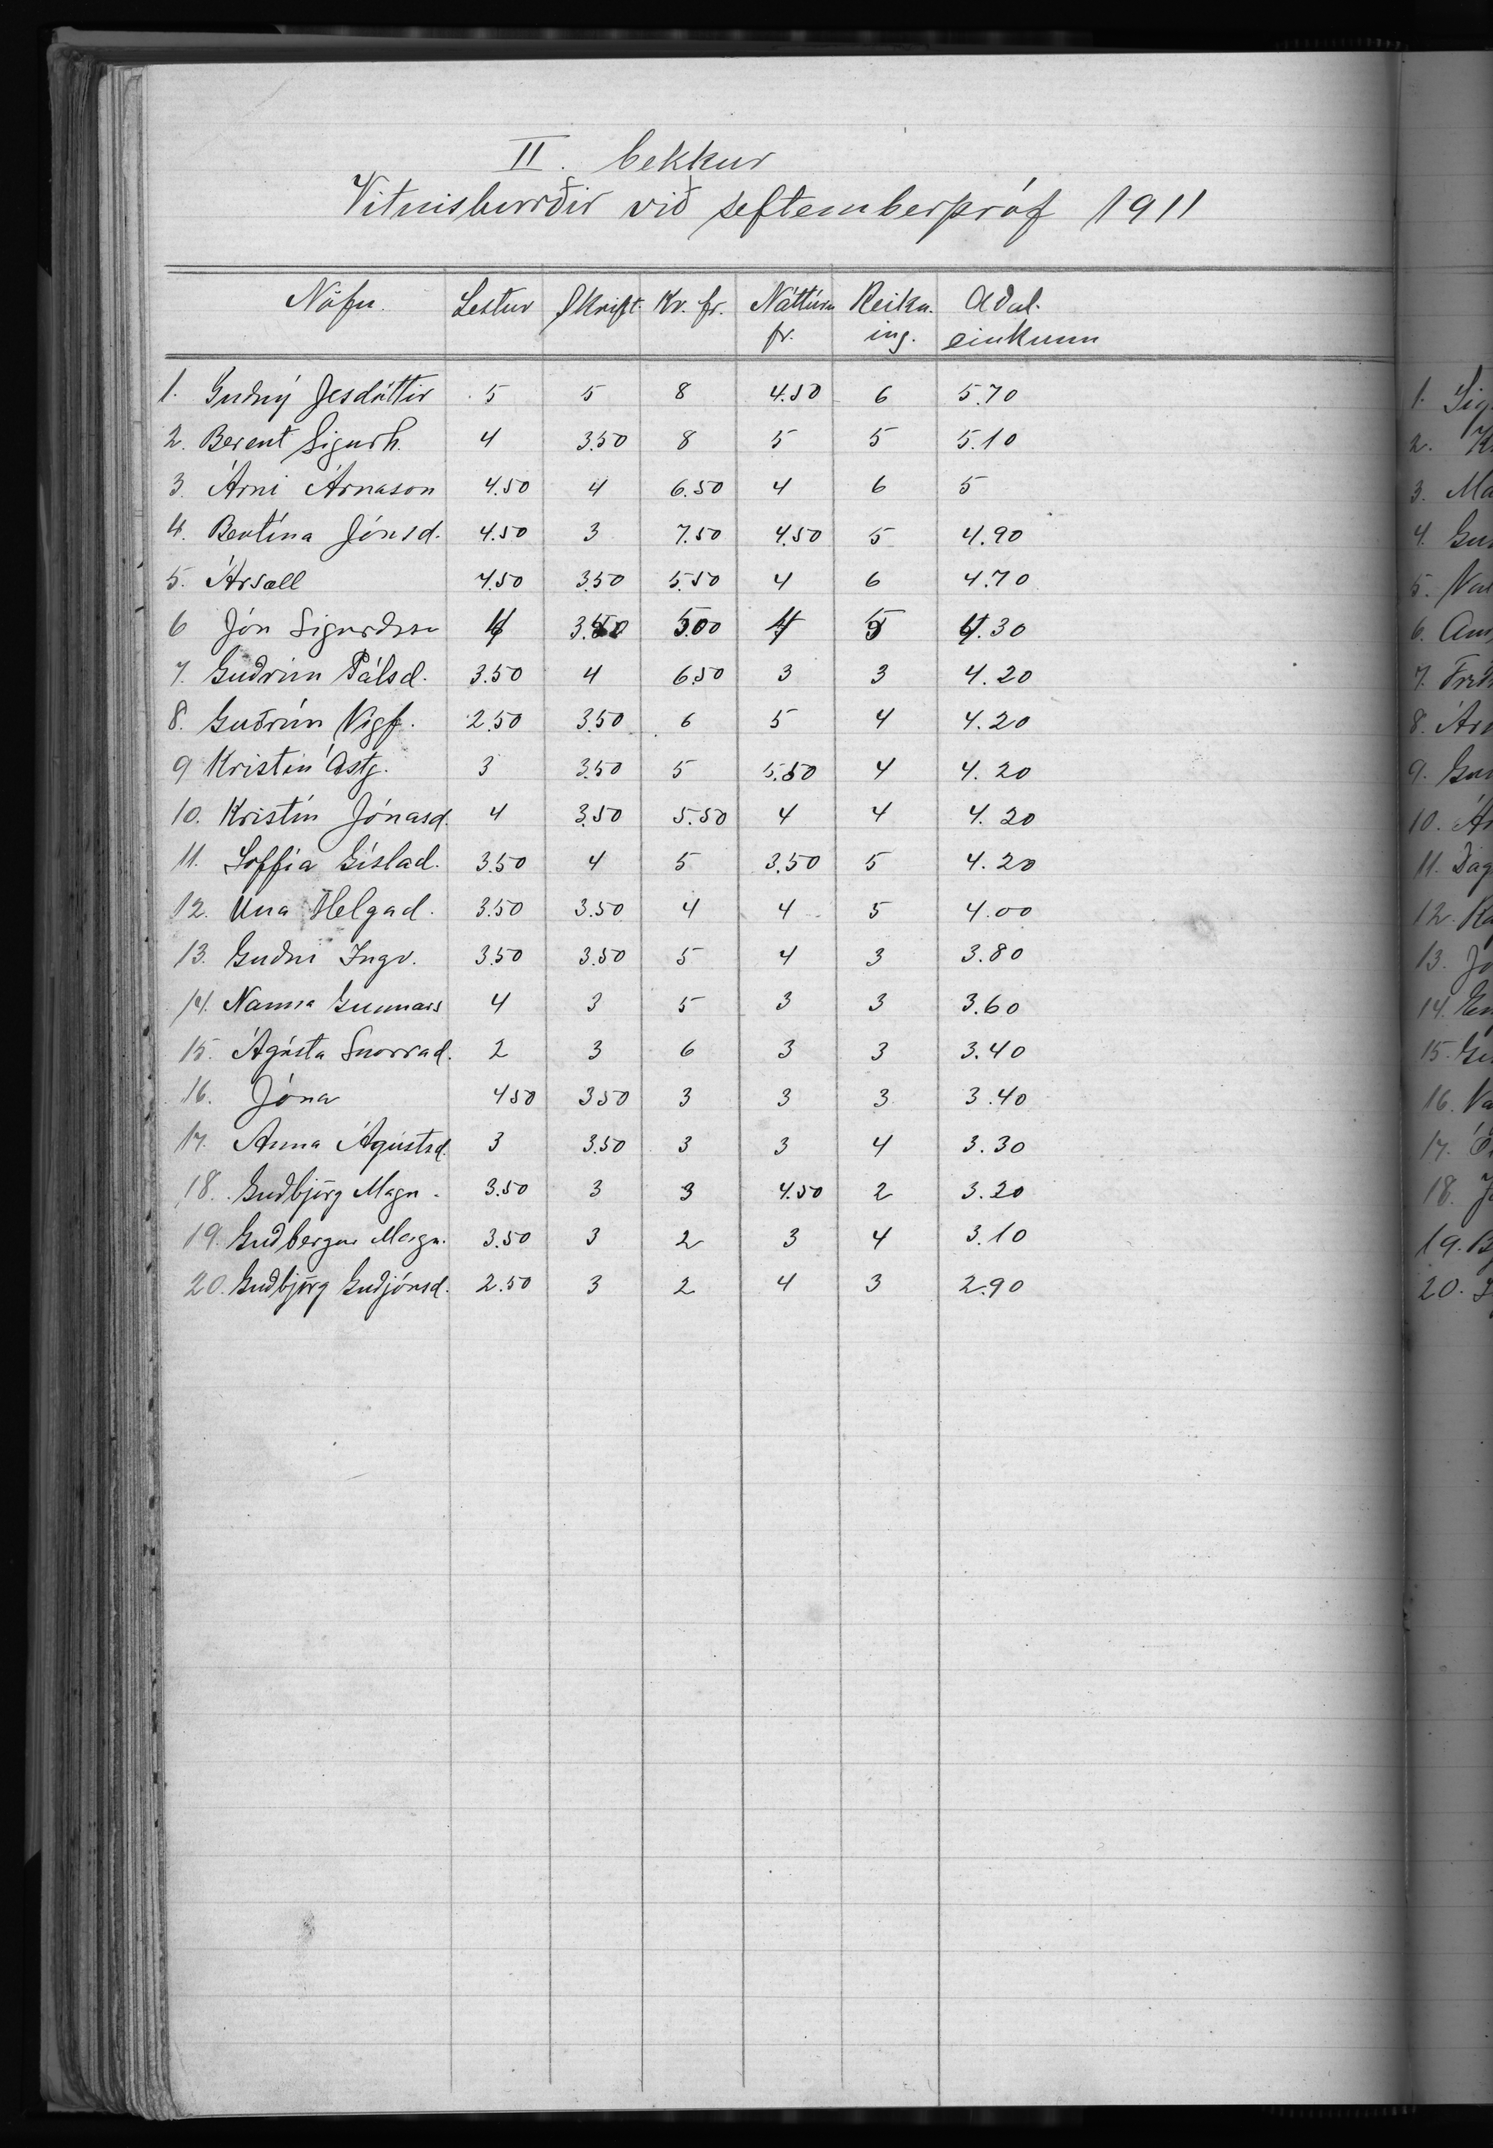 II. bekkur
Vitnisburðir við septemberpróf 1911
Nöfn. Lestur Skrift. Kr. fr. Náttúru fr. Reikn. ing. Aðal. einkunn
1. Guðný Jesdóttir 5 5 8 4.50 6 5.70
2. Berent Sigurh. 4 3.50 8 5 5 5.10
3. Árni Árnason 4.50 4 6.50 4 6 5
4. Bentína Jónsd. 4.50 3 7.50 4.50 5 4.90
5. Ársæll 4.50 3.50 5.50 4 6 4.70
6 Jón Sigurðsson 4 3.50 5.00 4 5 4.30
7. Guðrún Pálsd. 3.50 4 6.50 3 3 4.20
8. Guðrún Vigf. 2.50 3.50 6 5 4 4.20
9 Kristín Ástg. 3 3.50 5 5.50 4 4.20
10. Kristín Jónasd. 4 3.50 5.50 4 4 4.20
11. Soffía Gíslad. 3.50 4 5 3.50 5 4.20
12. Una Helgad. 3.50 3.50 4 4 5 4.00
13. Guðni Ingv. 3.50 3.50 5 4 3 3.80
14. Nanna Gunnars 4 3 5 3 3 3.60
15. Ágústa Snorrad. 2 3 6 3 3 3.40
16. Jóna 4 50 3 50 3 3 3 3.40
17. Anna Ágústsd. 3 3.50 3 3 4 3.30
18. Guðbjörg Magn. 3.50 3 3 4.50 2 3.20
19. Guðbergur Magn. 3.50 3 2 3 4 3.10
20. Guðbjörg Guðjónsd. 2.50 3 2 4 3 2.90